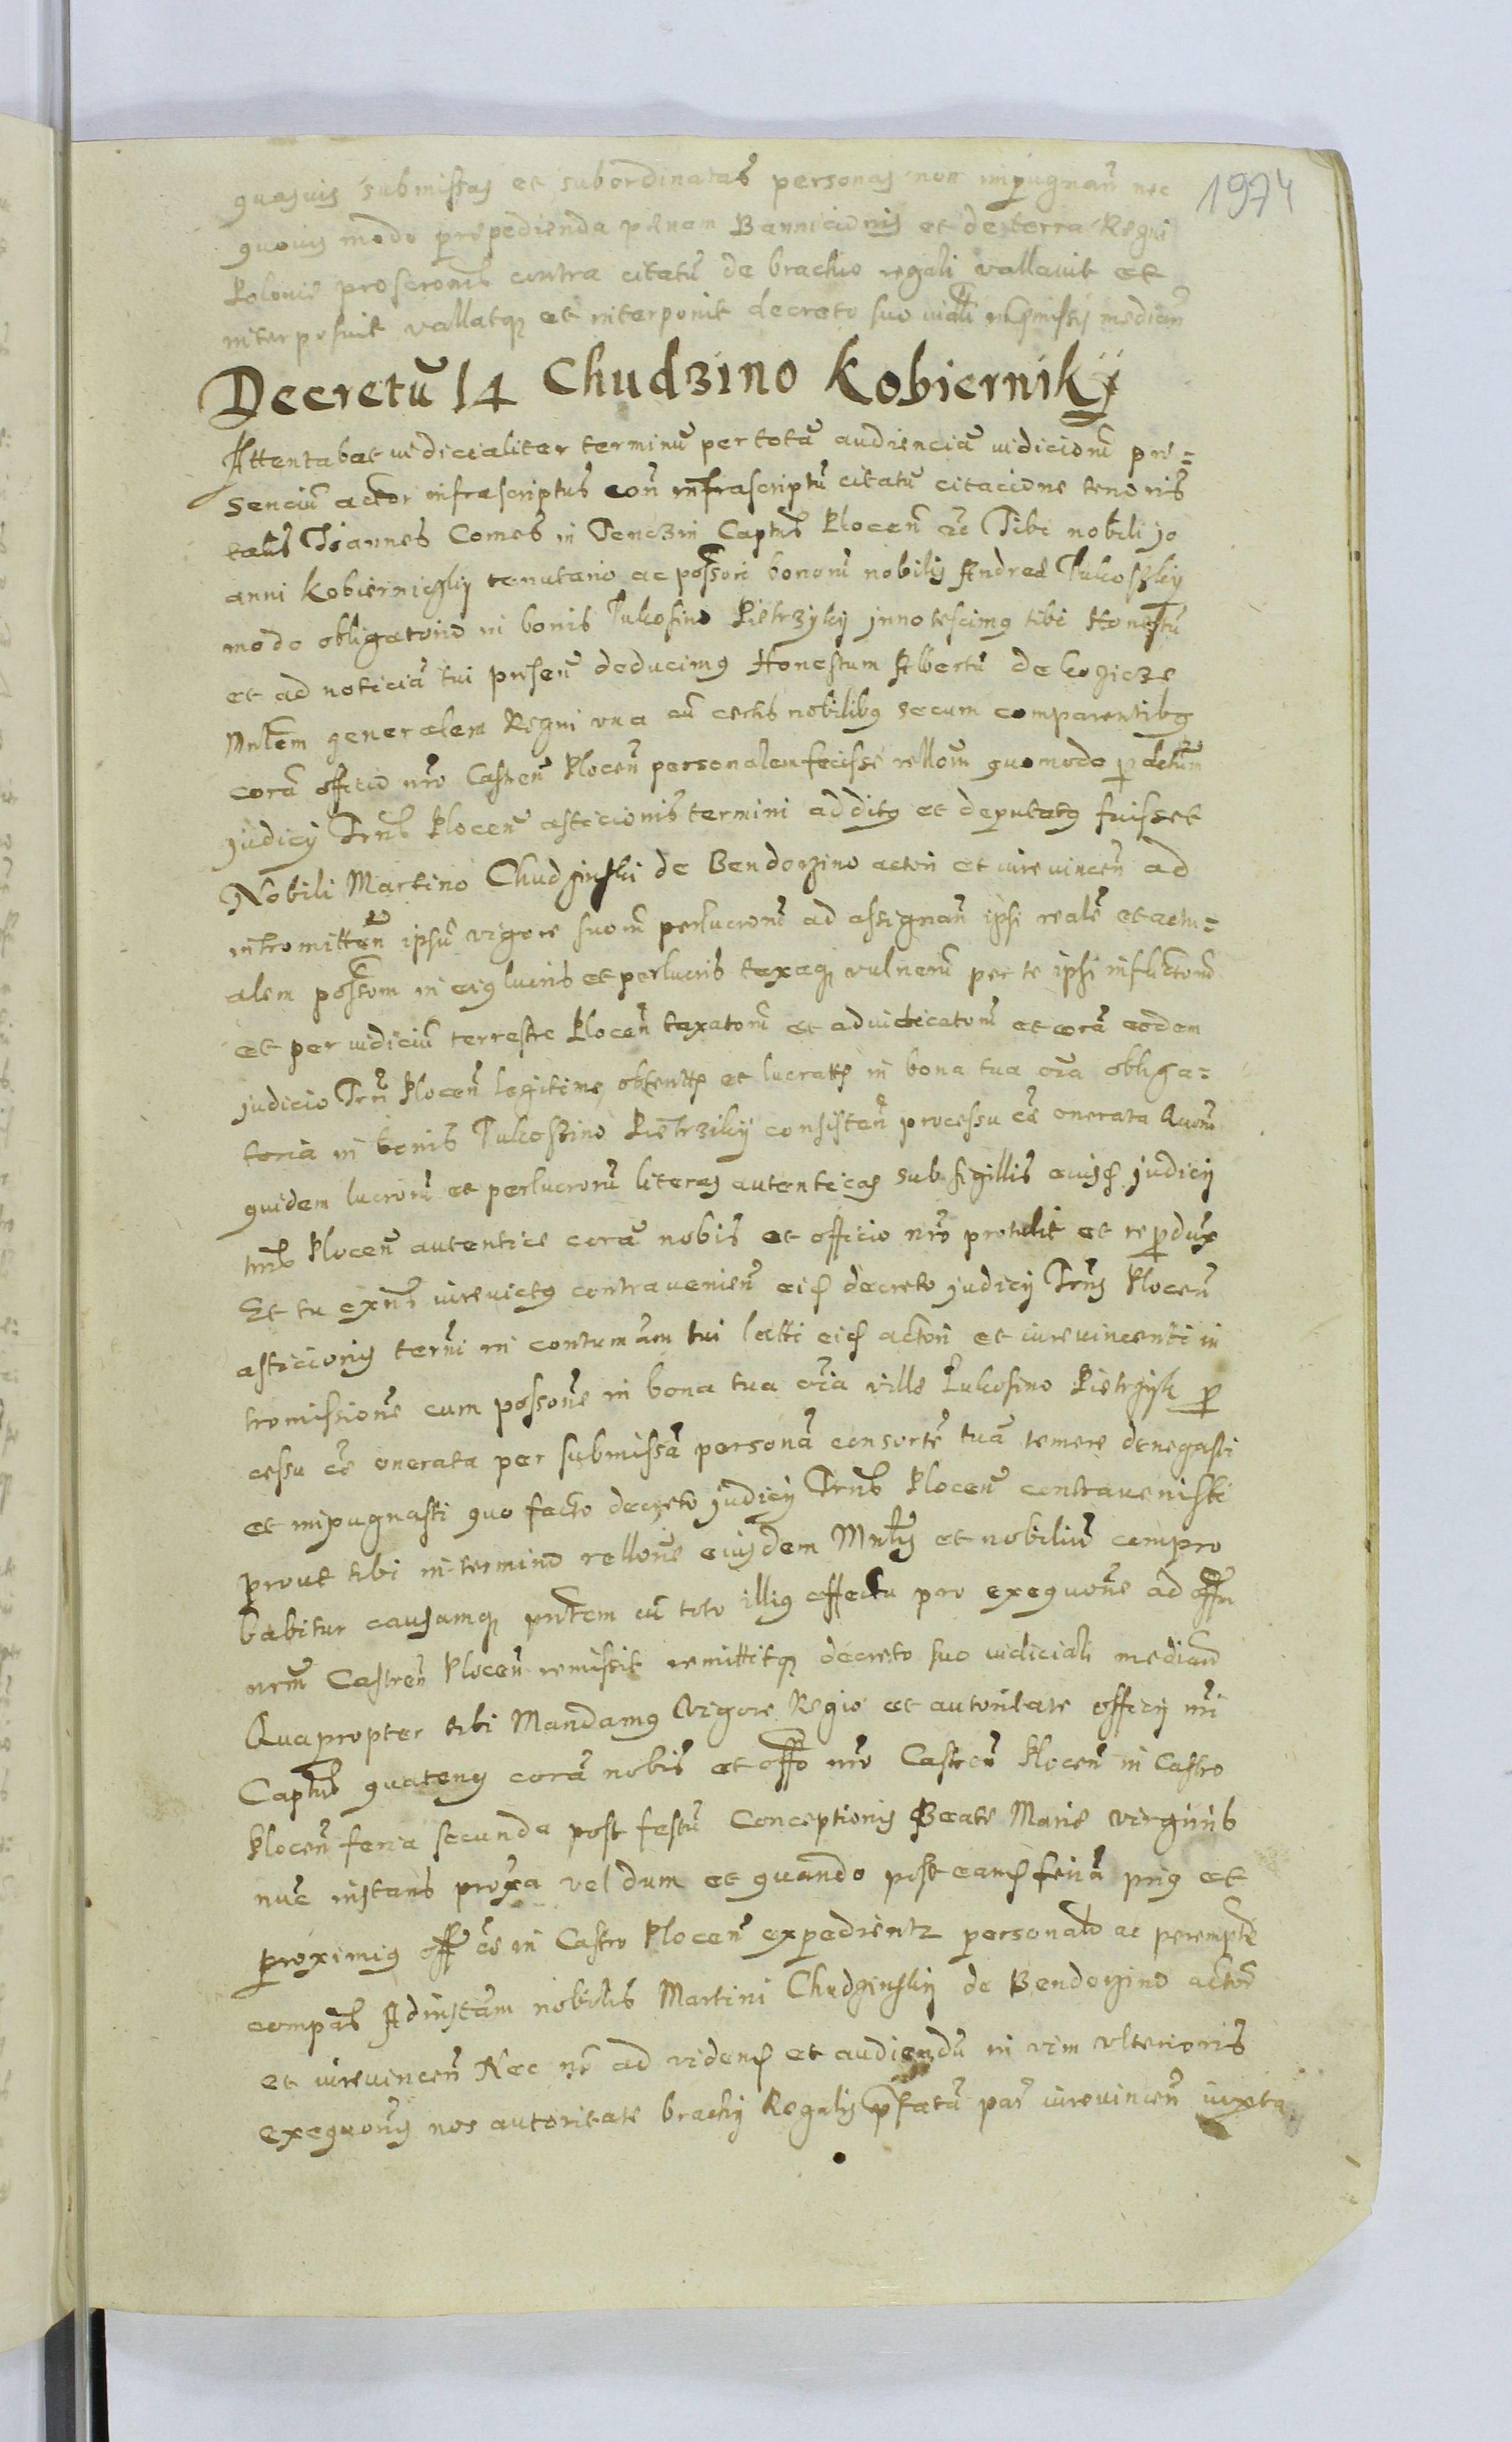 1974
quasvis submissas et subordinatas personas non impugnañ nec
quovis modo prepedienda penam Bannicionis et de terra Regni
Polonie proscronis contra citatũ de brachio regali vallavit et
interposuit vallatqȝ et interponit decreto suo median̄
Decretũ 14 Chudzino Kobiernikÿ
Attentabat iudicialiter terminũ per totã audienciã iudiciorũ pre=
senciũ actor infrascriptus con̄ infrascriptũ citatũ citacione tenoris
talis Joannes Comes in Tenczin Captus Plocen̄ etc Tibi nobili Jo
anni Kobierniczkij tenutario ac possori bonorũ nobilis Andree Lukoskij
modo obligatorio in bonis Lukosino Pietrzykij innotescimus tibi
et ad noticiã tui deducimus Honestum Albertũ de
Mnlem generalem Regni una cũ certis nobilibus secum comparentibus
corã officio nr̄o Castren̄ Plocen̄ personalem fecisse rellom quomodo p detum
judicij Trris Plocen̄ asticionis termini additus et deputatus fuisset
Nobili Martino Chudzinski de Bendorzino actori et iurevincen̄ ad
intromitten̄ ipsũ vigore suorũ perlucrorũ ad assignan̄ ipsi realẽ et actu=
alem possrom in eius lucris et perlucris taxaqȝ vulnerũ per te ipsi inflictorũ
et per iudiciũ terrestre Plocen̄ taxatorũ et adiudicatorũ et corã eodem
judicio Trri Plocen̄ legitime obtentis et lucratis in bona tua oĩa obliga=
toria in bonis Lukoszino Pietrzikij consisten̄ processu eo onerata Quorũ
quidem lucrorũ et perlucrorũ literas autenticas sub sigillis eiusd judicij
trris Plocen̄ autentice corã nobis et officio nr̄o protulit et reperdux
Et tu exn̄s iurevictus contravenien̄ eid decreto judicij Trris Plocen̄
asticionis terni in contumam tui latti eid actori et iurevincenti in
tromissione cum possone in bona tua oĩa ville Lukosino Pietrzyk p
cessu eo onerata per submissã personã consortẽ tuã temere denegasti
et impugnasti quo facto decreto judicij Trris Plocen̄ contravenisti
prout tibi in termino rellone eiusdem Mnlis et nobiliũ compro
babitur causamqȝ pntem cũ toto illius effectu pro exequone ad offm
nrm Castren̄ Plocen̄ remissit remittitqȝ decreto suo iudiciali median̄
Quapropter tibi Mandamus Vigore Regio et autoritate officij nri
Captus quatenus corã nobis et offo nr̄o Castren̄ Plocen̄ in Castro
Plocen̄ feria secunda post festũ Conceptionis Beate Marie virginis
nũc instans proxa vel dum et quando post eamd feriã prius et
proximius off eo in Castro Plocen̄ expedientz personalr ac perempte
compas Ad instam nobilis Martini Chudzinskij de Bendorzino actor
et iurevincen̄ Nec nõ ad videnđ et audiendũ in vim ulterioris
exequonis nos autoritate brachij Regalis pfatã par iurevincen̄ iuxta